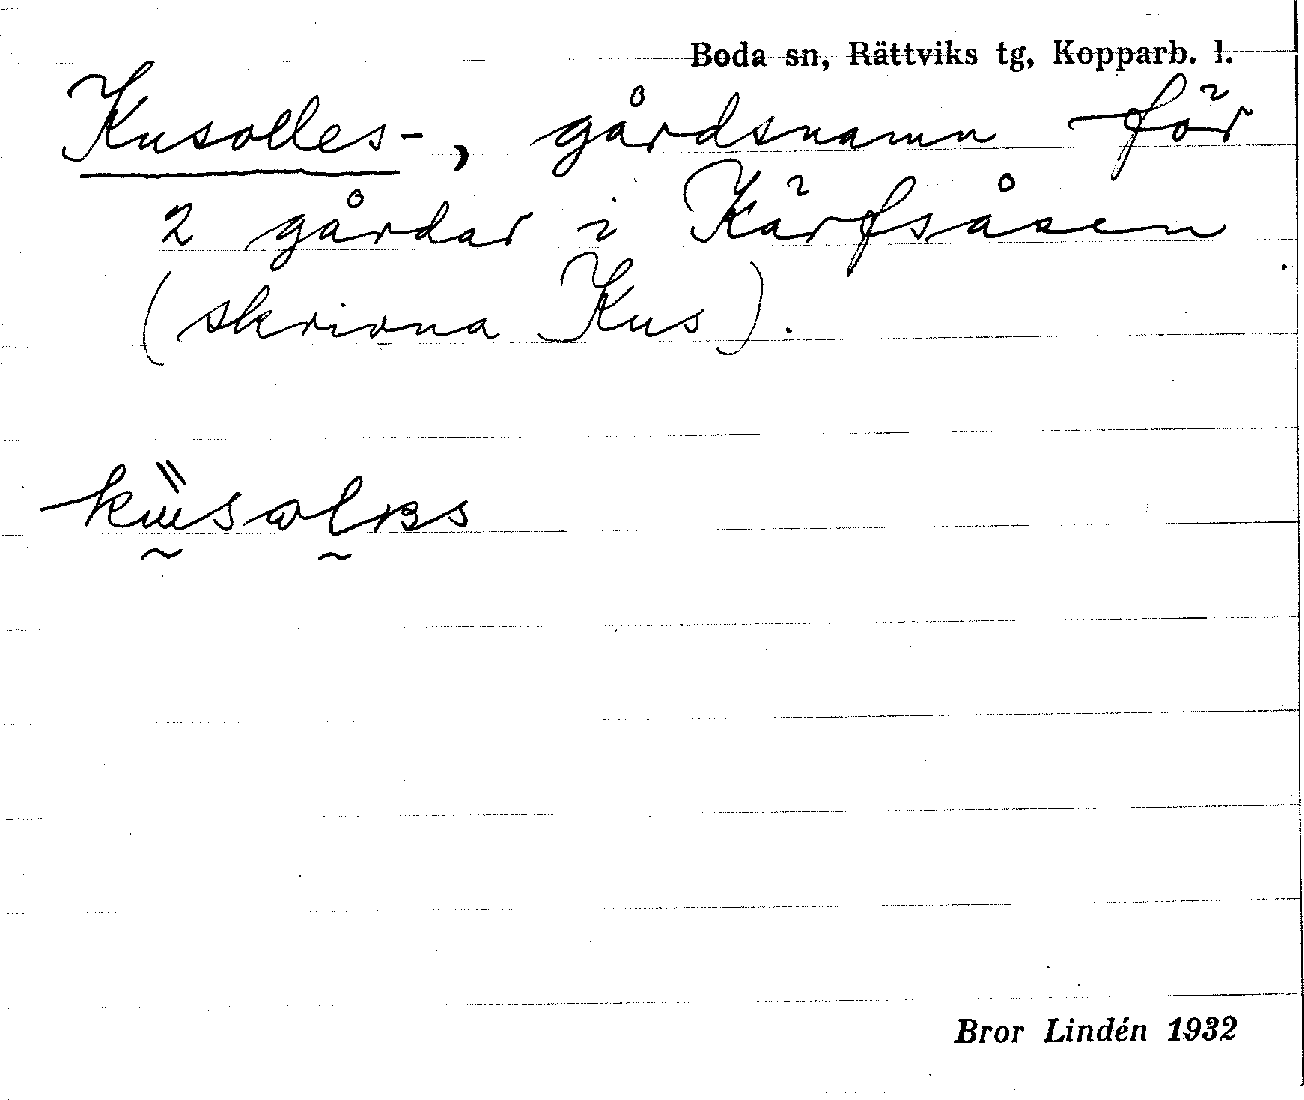 Boda sn, Rättviks tg, Kopparb. l.
Kusolles-, gårdsnamn för
2 gårdar i Kärfsåsen
(skrivna Kus).
Bror Lindén 1932